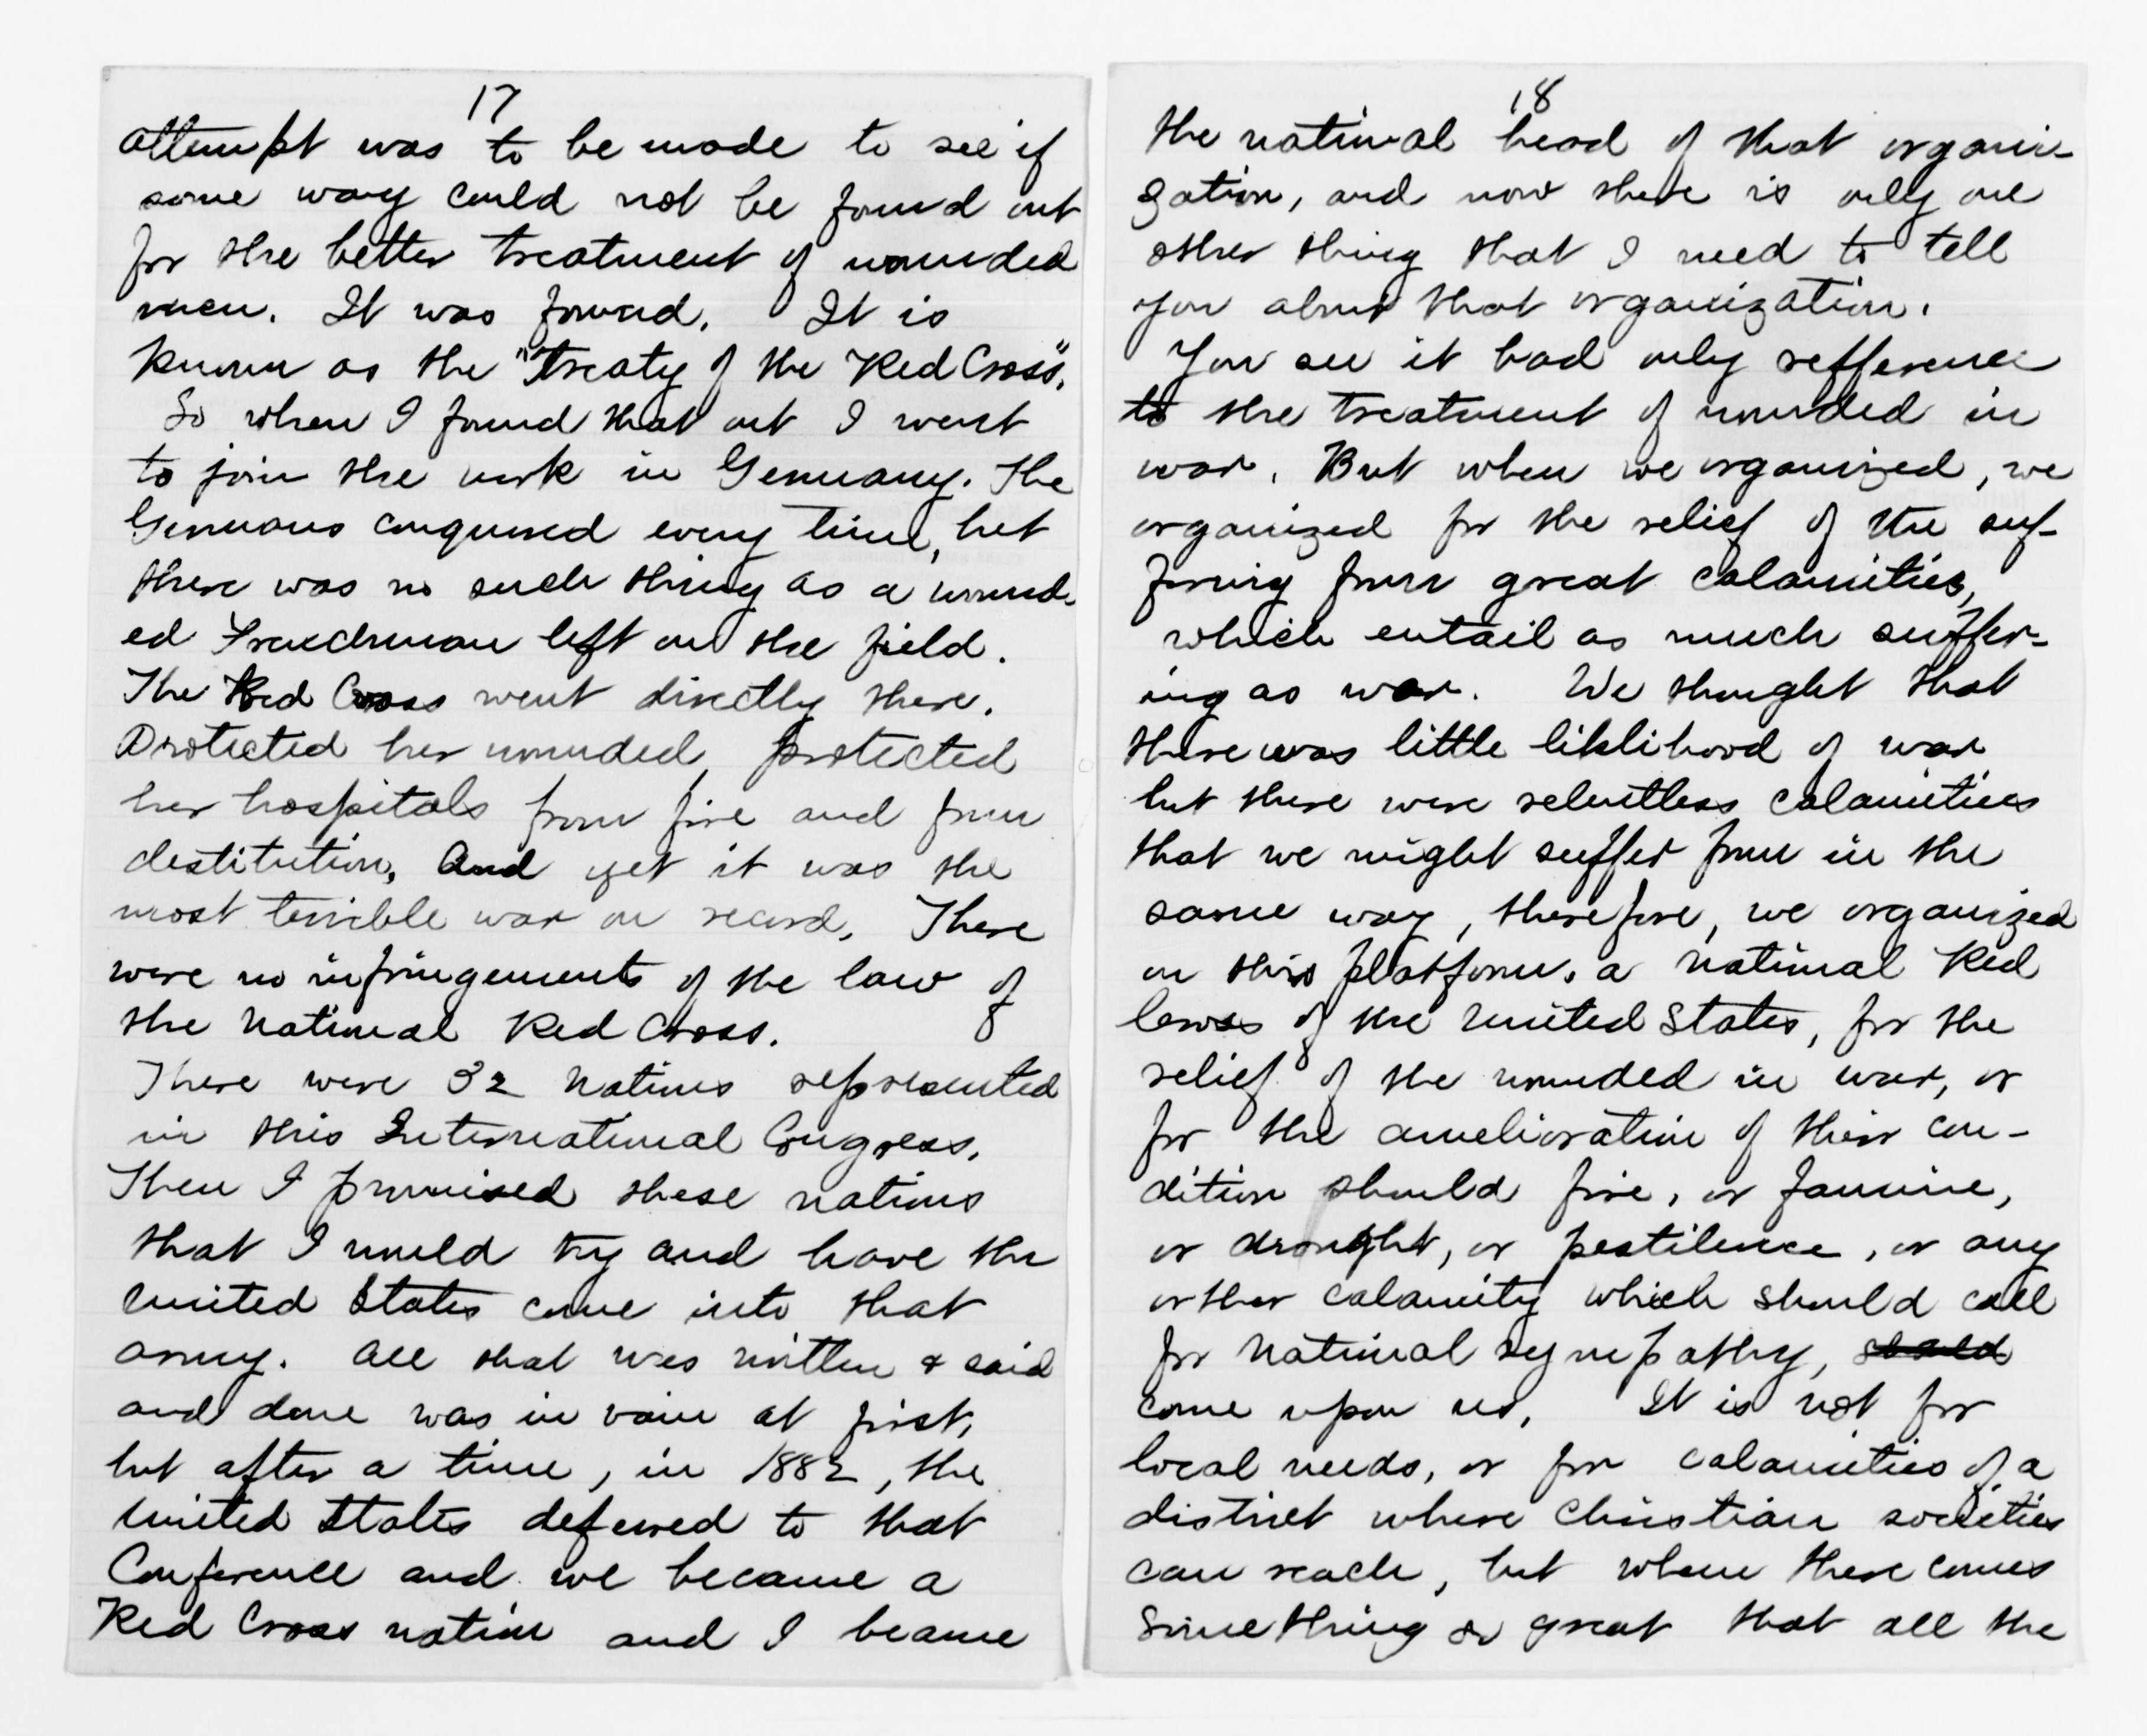 17
attempt was to be made to see if
some way could not be found out
for the better treatment of wounded
men. It was found. It is
known as the "Treaty of the Red Cross".
So when I found that out I went
to join the work in Germany. The
Germans conquered every time, but
there was no such thing as a wound-
ed Frenchman left on the field.
The Red Cross went directly there.
Protected her wounded, protected
her hospitals from fire and from
destitution, And yet it was the
most terrible war on record. There
were no infringements of the law of
the National Red Cross.
There were 32 Nations represented
in this International Congress.
Then I promised these nations
that I would try and have the
United States come into that
army. All that was written & said
and done was in vain at first,
but after a time, in 1882, the
United States deferred to that
Conference and we became a
Red Cross nation and I became
18
the national head of that organi-
zation, and now there is only one
other thing that I need to tell
you about that organization.
You see it had only refference
to the treatment of wounded in
war. But when we organized, we
organized for the relief of the suf-
fering from great calamities,
which entail as much suffer-
ing as war. We thought that
there was little liklihood of war
but there were relentless calamities
that we might suffer from in the
same way, therefore, we organized
on this platform. a National Red
Cross of the United States, for the
relief of the wounded in war, or
for the amelioration of their con-
dition should fire, or famine,
or drought, or pestilence, or any
orther calamity which should call
for National sympathy, should
come upon us. It is not for
local needs, or for calamities of a
district where Christian societies
can reach, but when there comes
something so great that all the